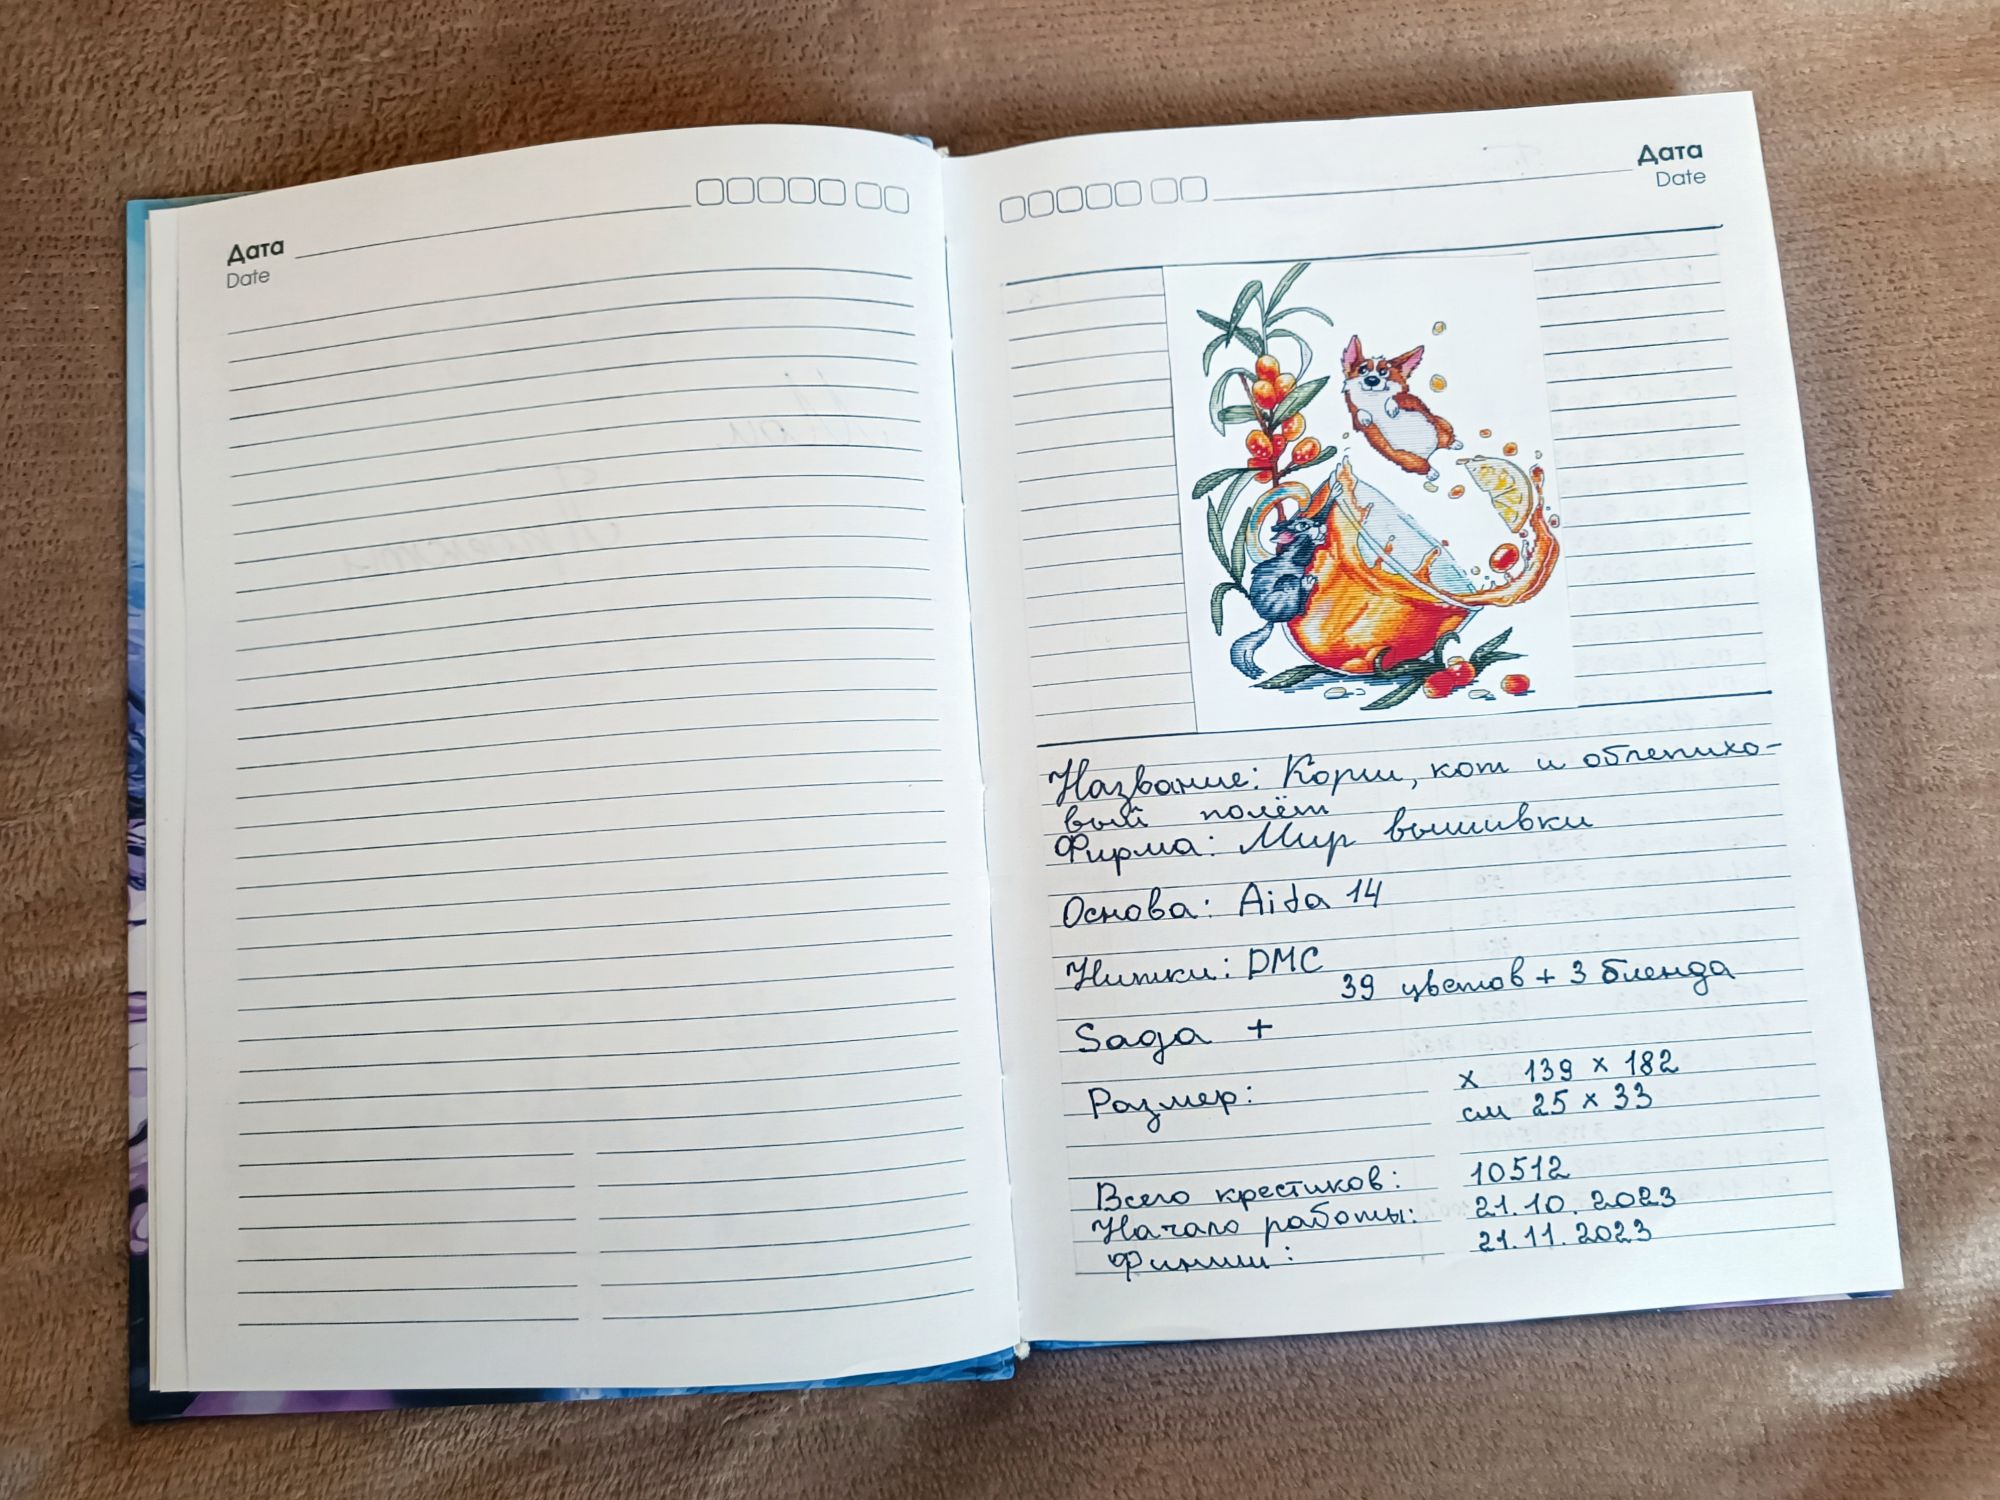 Дата
Date
Дата
Date
Название: Корги, кот и облепихо-
вый полёт
Фирма: Мир вышивки
Основа: Aida 14
Нитки: DMC
39 цветов + 3 бленда
Saga +
Размер: х 139 х 182
см 25 х 33
Всего крестиков: 10512
Начало работы: 21.10.2023
Финиш: 21.11.2023